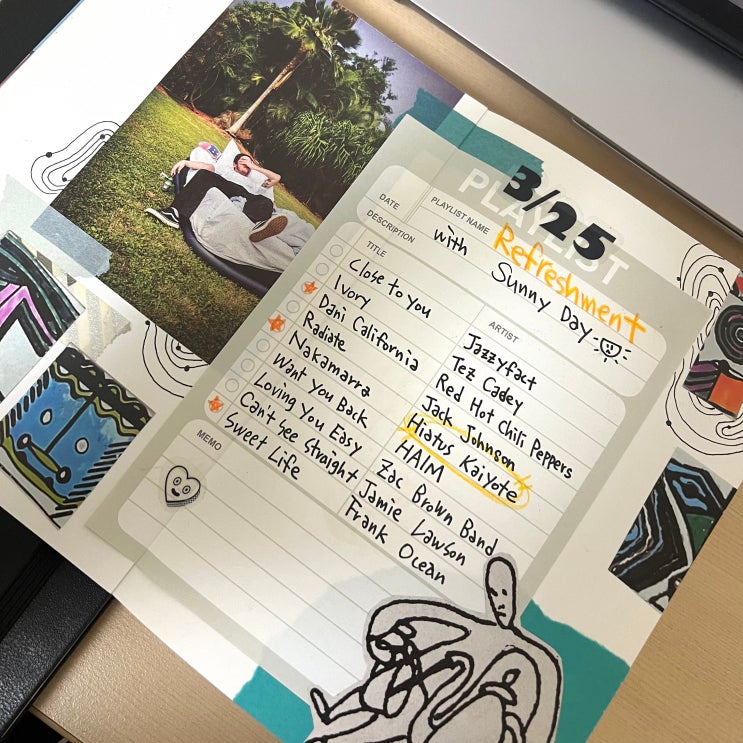 3/25
PLAYLIST
DATE
PLAYLIST NAME Refreshment
DESCRIPTION with Sunny Day
TITLE ARTIST
Close to you Jazzyfact
Ivory Tez Cadey
Dani California Red Hot Chili Peppers
Radiate Jack Johnson
Nakamarra Hiatus Kaiyote
Want You Back HAIM
Loving You Easy Zac Brown Band
Can't See Straight Jamie Lawson
Sweet Life Frank Ocean
MEMO